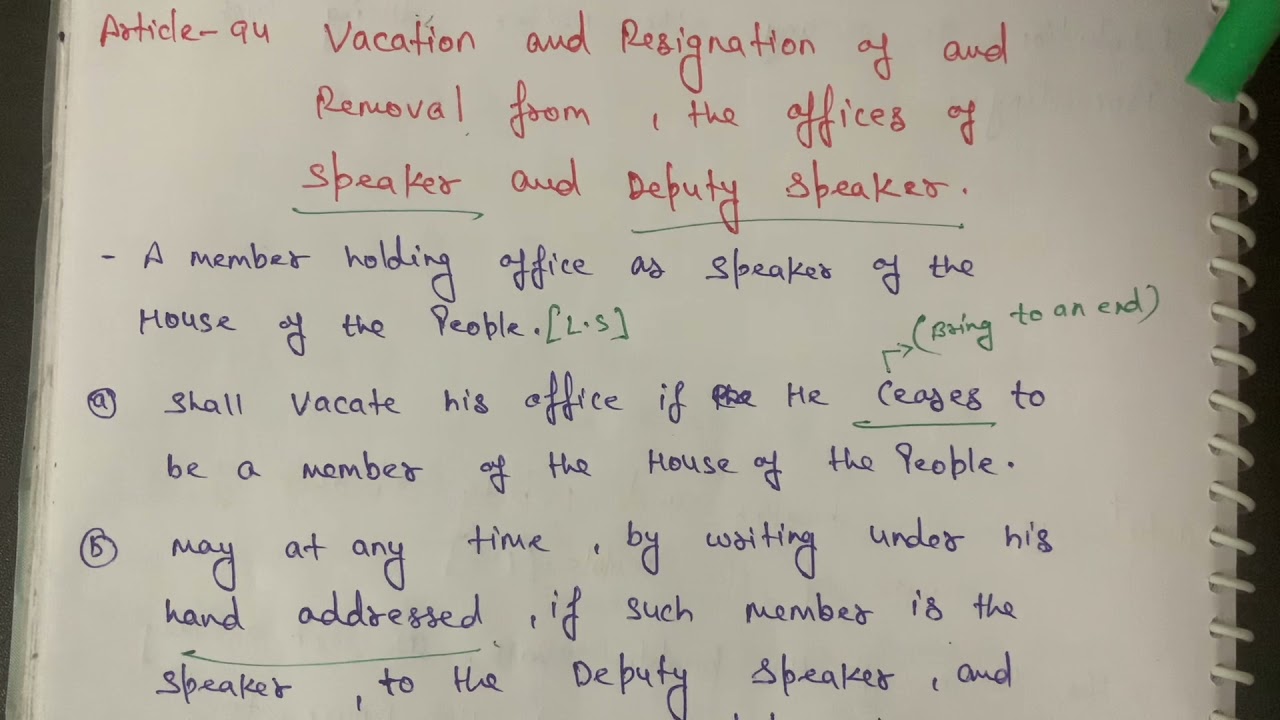 Article-94 Vacation and Resignation of and
Removal from, the offices of
Speaker and Deputy Speaker.
- A member holding office as Speaker of the
House of the People. [L.S]
(Bring to an end)
(a) Shall vacate his office if He Ceases to
be a member of the House of the People.
(b) may at any time, by writing under his
hand addressed, if such member is the
Speaker, to the Deputy Speaker, and